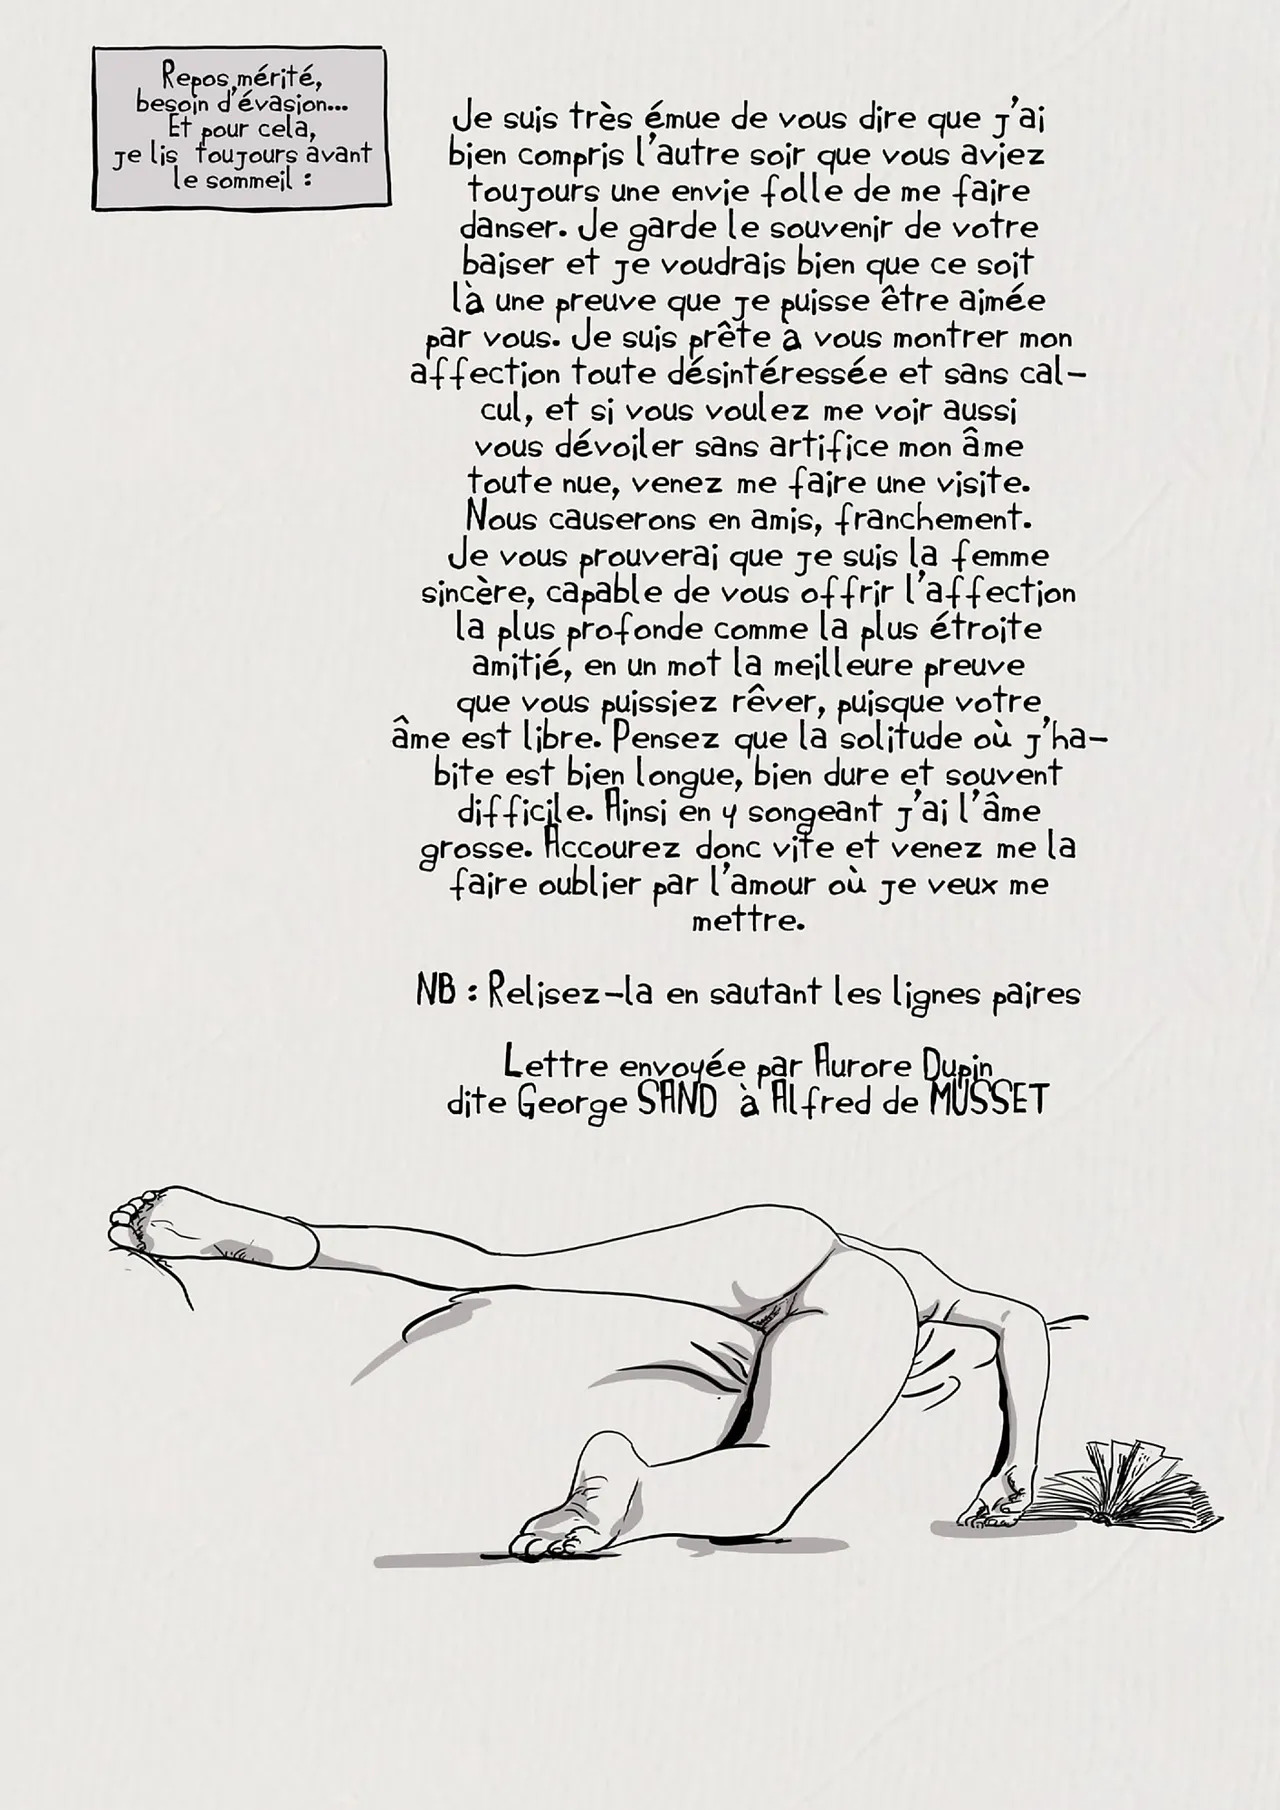 Repos mérité,
besoin d'évasion...
Et pour cela,
je lis toujours avant
le sommeil :
Je suis très émue de vous dire que j'ai
bien compris l'autre soir que vous aviez
toujours une envie folle de me faire
danser. Je garde le souvenir de votre
baiser et je voudrais bien que ce soit
là une preuve que je puisse être aimée
par vous. Je suis prête à vous montrer mon
affection toute désintéressée et sans cal-
cul, et si vous voulez me voir aussi
vous dévoiler sans artifice mon âme
toute nue, venez me faire une visite.
Nous causerons en amis, franchement.
Je vous prouverai que je suis la femme
sincère, capable de vous offrir l'affection
la plus profonde comme la plus étroite
amitié, en un mot la meilleure preuve
que vous puissiez rêver, puisque votre
âme est libre. Pensez que la solitude où j'ha-
bite est bien longue, bien dure et souvent
difficile. Ainsi en y songeant j'ai l'âme
grosse. Accourez donc vite et venez me la
faire oublier par l'amour où je veux me
mettre.
NB : Relisez-la en sautant les lignes paires
Lettre envoyée par Aurore Dupin
dite George SAND à Alfred de MUSSET